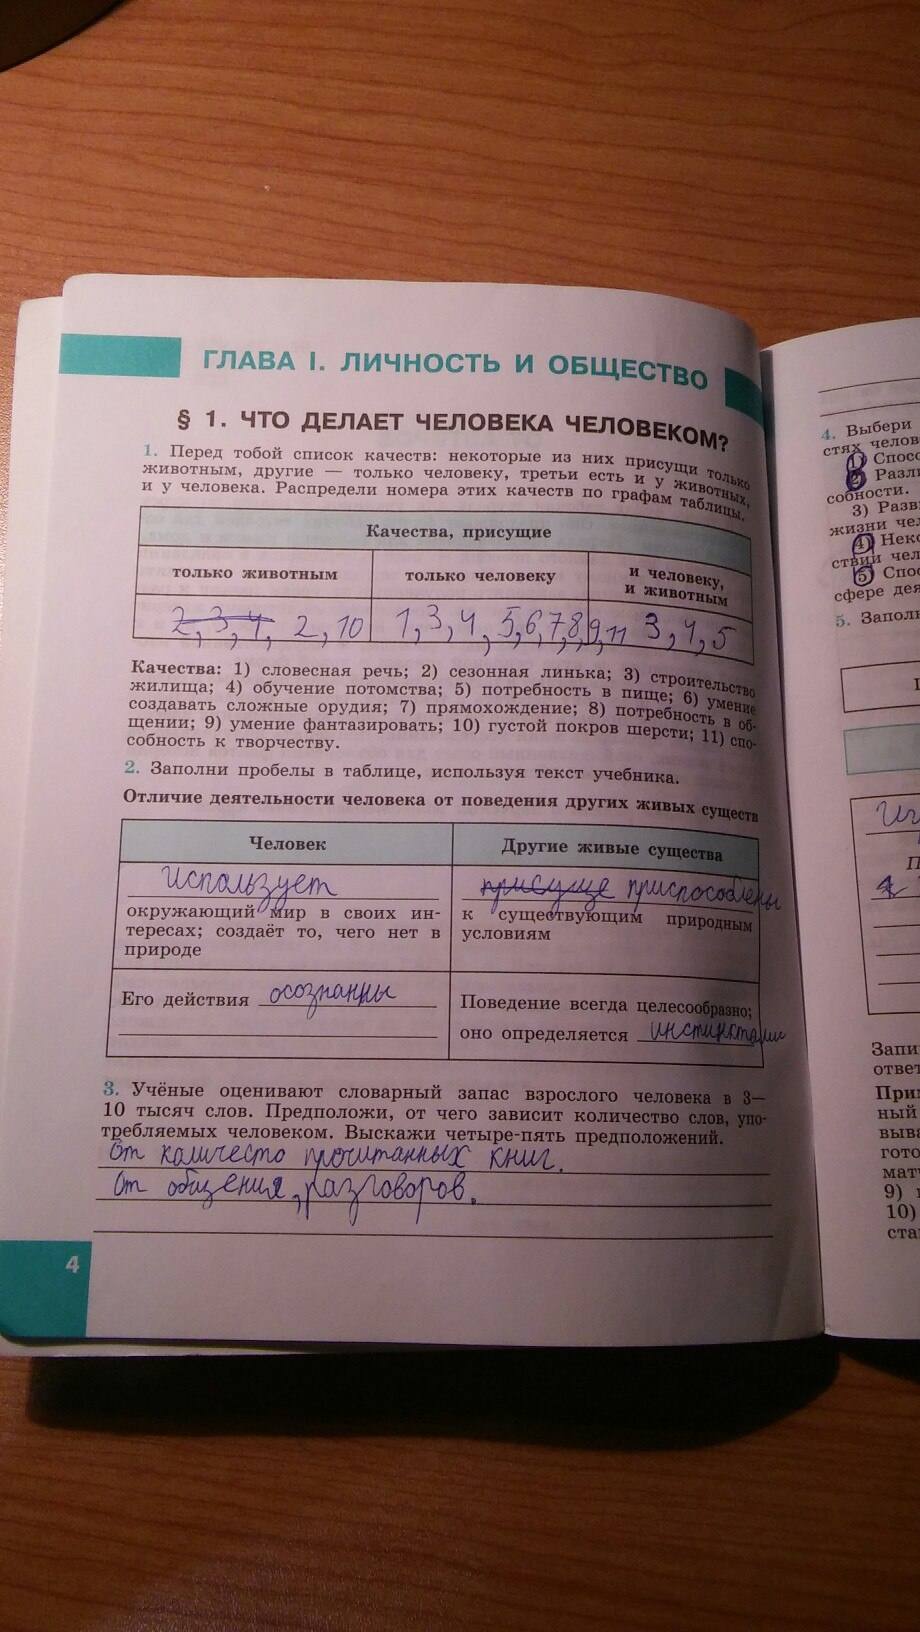 ГЛАВА I. ЛИЧНОСТЬ И ОБЩЕСТВО
§ 1. ЧТО ДЕЛАЕТ ЧЕЛОВЕКА ЧЕЛОВЕКОМ?
1. Перед тобой список качеств: некоторые из них присущи только
животным, другие — только человеку, третьи есть и у животных,
и у человека. Распредели номера этих качеств по графам таблицы.
Качества, присущие
только животным
только человеку
и человеку,
и животным
2, 3, 4, 2, 10
1, 3, 4, 5, 6, 7, 8, 9, 11
3, 4, 5
Качества: 1) словесная речь; 2) сезонная линька; 3) строительство
жилища; 4) обучение потомства; 5) потребность в пище; 6) умение
создавать сложные орудия; 7) прямохождение; 8) потребность в об-
щении; 9) умение фантазировать; 10) густой покров шерсти; 11) спо-
собность к творчеству.
2. Заполни пробелы в таблице, используя текст учебника.
Отличие деятельности человека от поведения других живых существ
Человек
Другие живые существа
Использует
окружающий мир в своих ин-
тересах; создаёт то, чего нет в
природе
присуще приспособлены
к существующим природным
условиям
Его действия осознанны
Поведение всегда целесообразно;
оно определяется инстинктами
3. Учёные оценивают словарный запас взрослого человека в 3—
10 тысяч слов. Предположи, от чего зависит количество слов, упо-
требляемых человеком. Выскажи четыре-пять предположений.
От количесто прочитанных книг.
От общения, разговоров.
4
4. Выбери
стях челов
1) Спосо
2) Разли
собности.
3) Разв
жизни чел
4) Неко
ствии чел
5) Спос
сфере дея
5. Заполн
Запи
ответ
Прим
ный
выва
гото
мат
9)
10)
ста